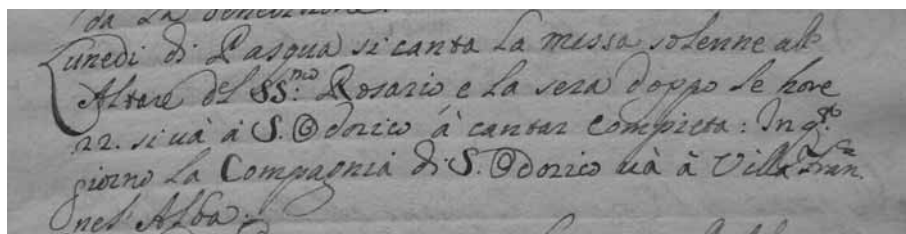 da la benedizione.
Lunedi di Pasqua si canta la messa solenne all'
Altare del SS:mo Rosario e la sera doppo le hore
22. si uà à S. Odorico à cantar Compieta: In q.to
giorno la Compagnia di S. Odorico uà à Villa Fran.ca
nel' Alba.